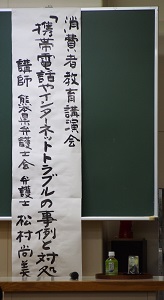 消費者教育講演会
「携帯電話やインターネットトラブルの事例と対処
講師 熊本県弁護士会 弁護士 松村尚美